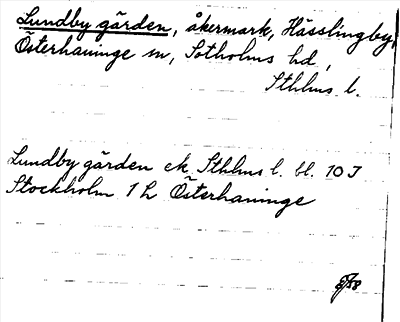 Lundby gården, åkermark, Hässlingby,
Österhaninge sn, Sotholms hd,
Sthlms l.
Lundby gården ek. Sthlms l. bl. 10 I
Stockholm 1 h Österhaninge